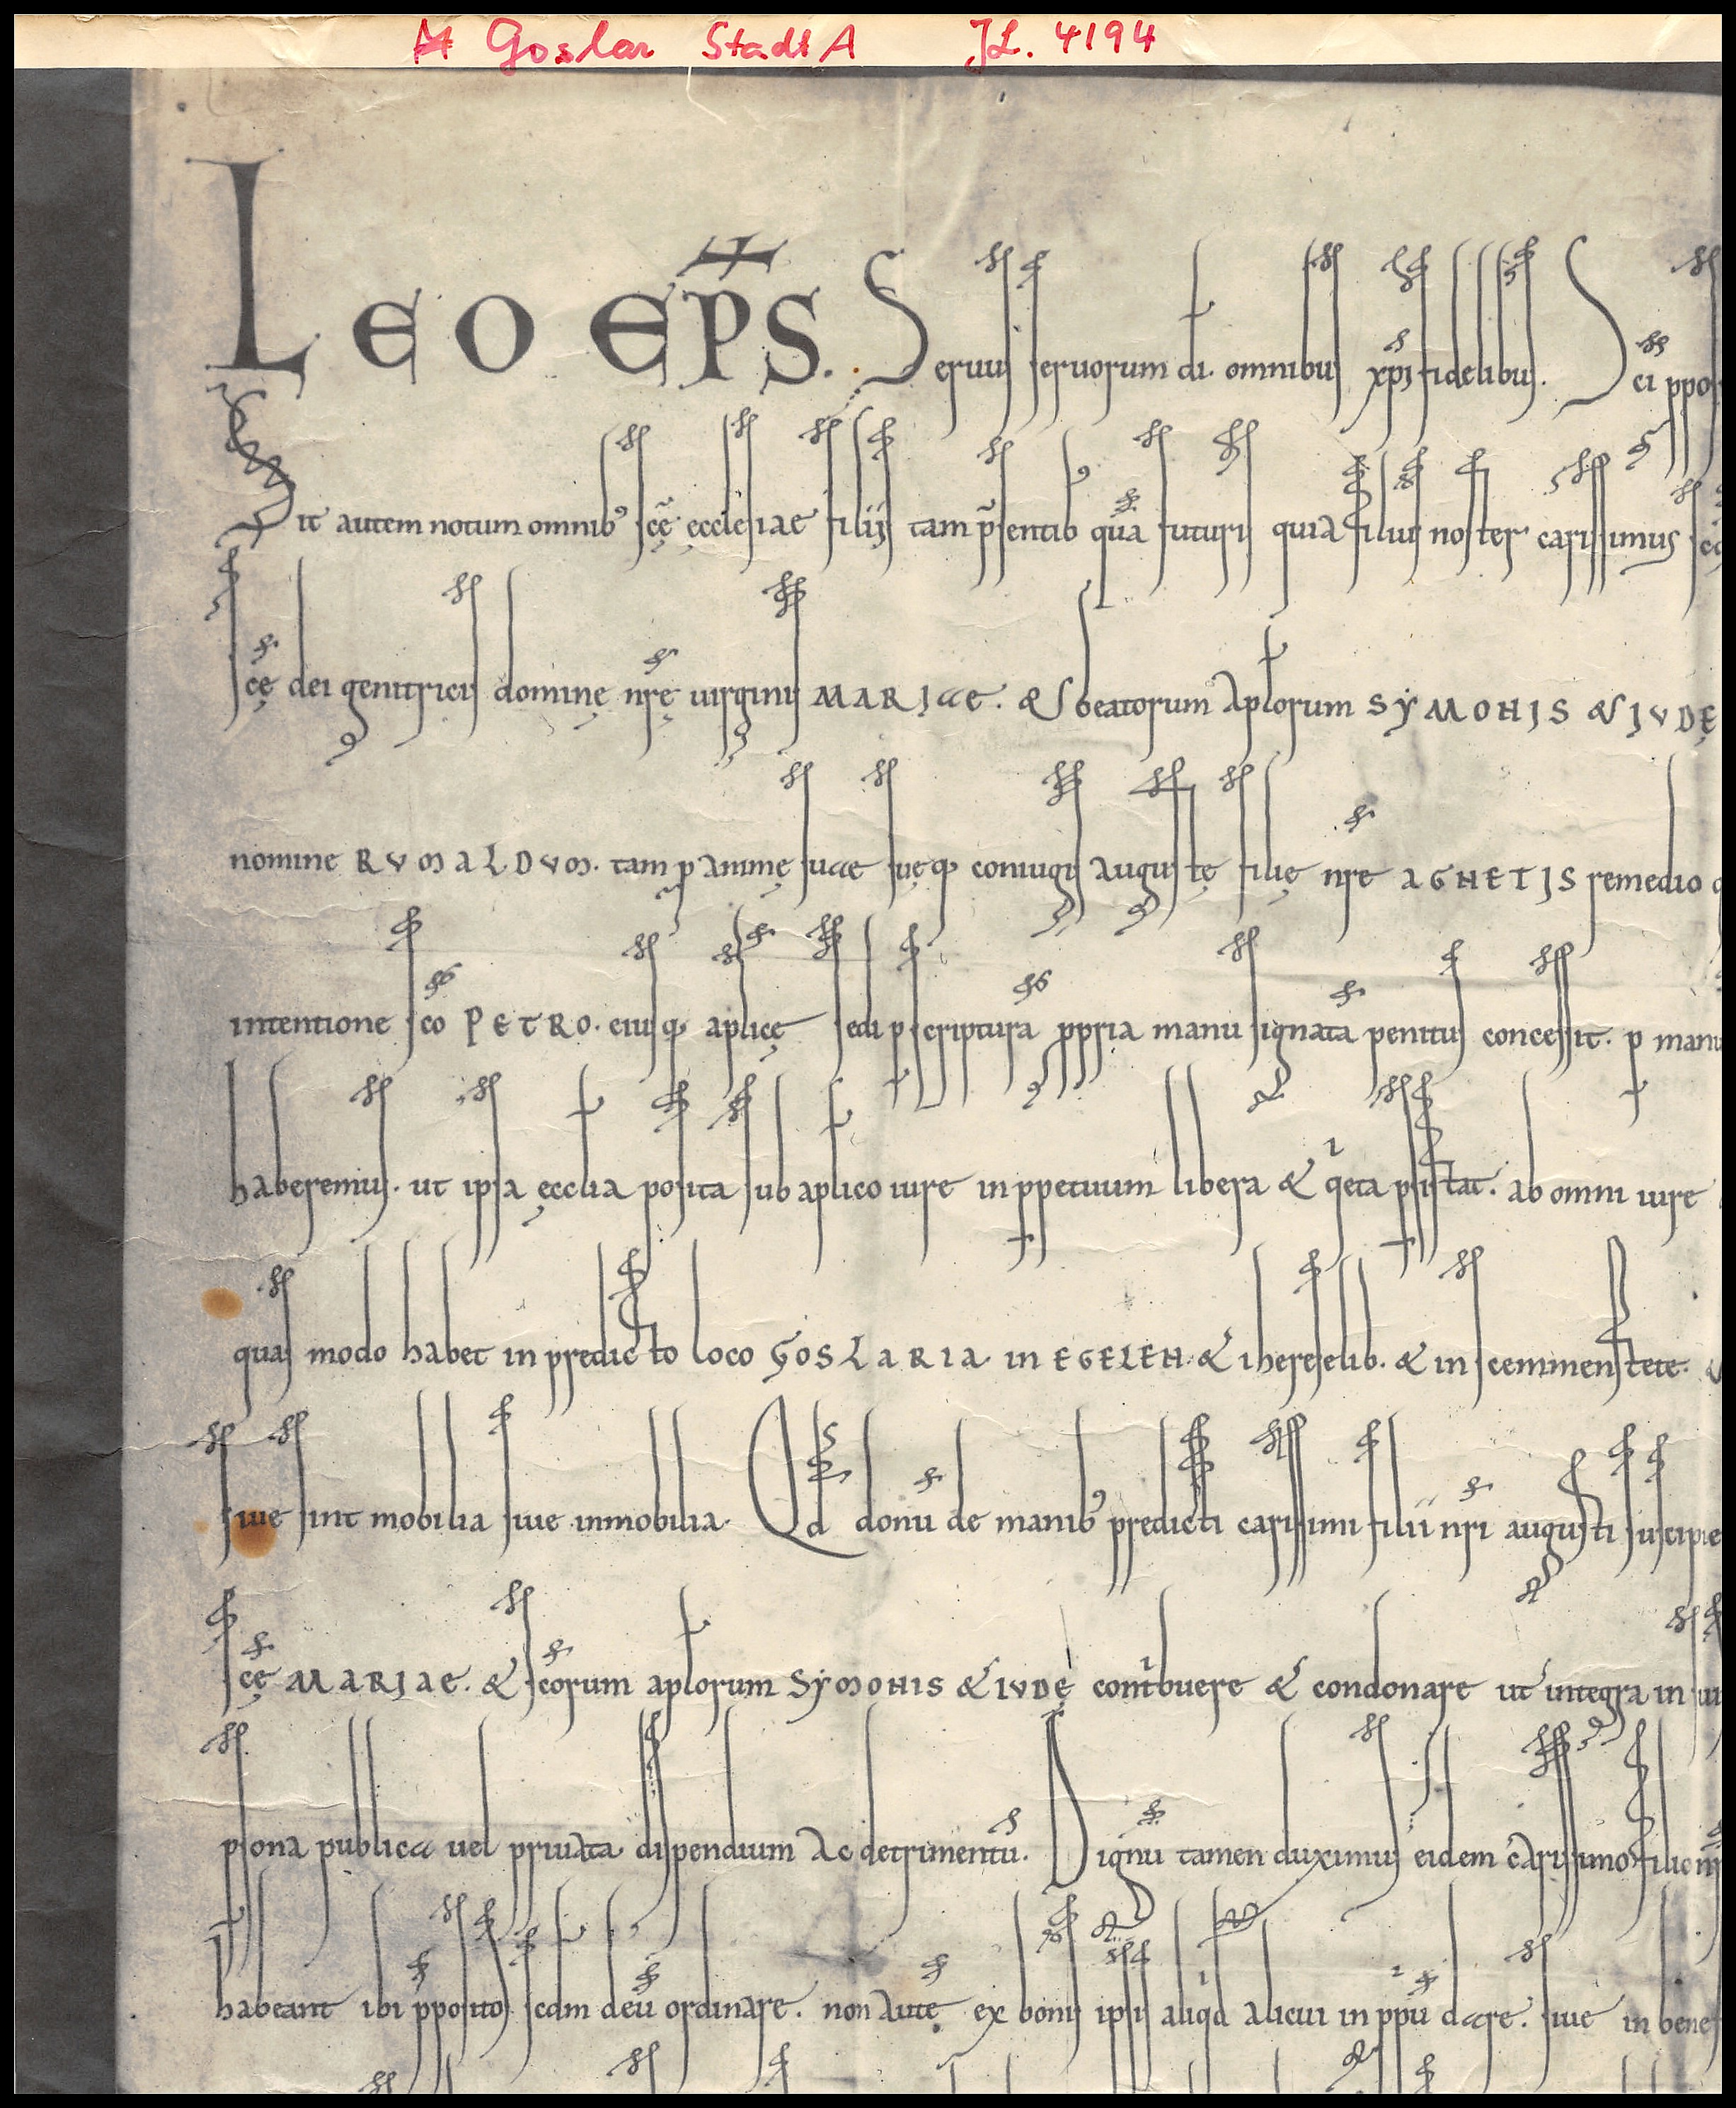 Goslar StadtA JL. 4194
LEO EP̄S. Seruus seruorum di. omnibus xpi fidelibus. Sci ppo
Sit autem notum omnib⁹ scę ęcclesiae filiis tam p̄sentib quā futuris quia filius noster carissimus
scę dei genitricis dominę nrę uirginis MARIAE. & beatorum aplorum SYMONIS & IVDĘ
nomine RVMALDVM. tam p animę suae suęq; coniugis augustę filię nrę AGNETIS remedio
intentione sco PETRO. eiusq; aplicę sedi p scriptura ppria manu signata penitus concessit. p manu
haberemus. ut ipsa ęcclia posita sub aplico iure in ppetuum libera & qeta psistat. ab omni iure
quas modo habet in predicto loco GOSLARIA in EGELEN & ihereselib. & in scemmenstete.
siue sint mobilia siue inmobilia. Qd donū de manib⁹ predicti carissimi filii nri augusti suscipie
scę MARIAE. & scorum aplorum SYMONIS & IVDĘ contbuere & condonare ut integra in
psona publica uel priuata dispendium ac detrimentū. Dignū tamen duximus eidem carissimo filio nr
habeant ibi pposito scdm deū ordinare. non autē ex bonis ipsis aliqd alicui in ppū dare. siue in benef